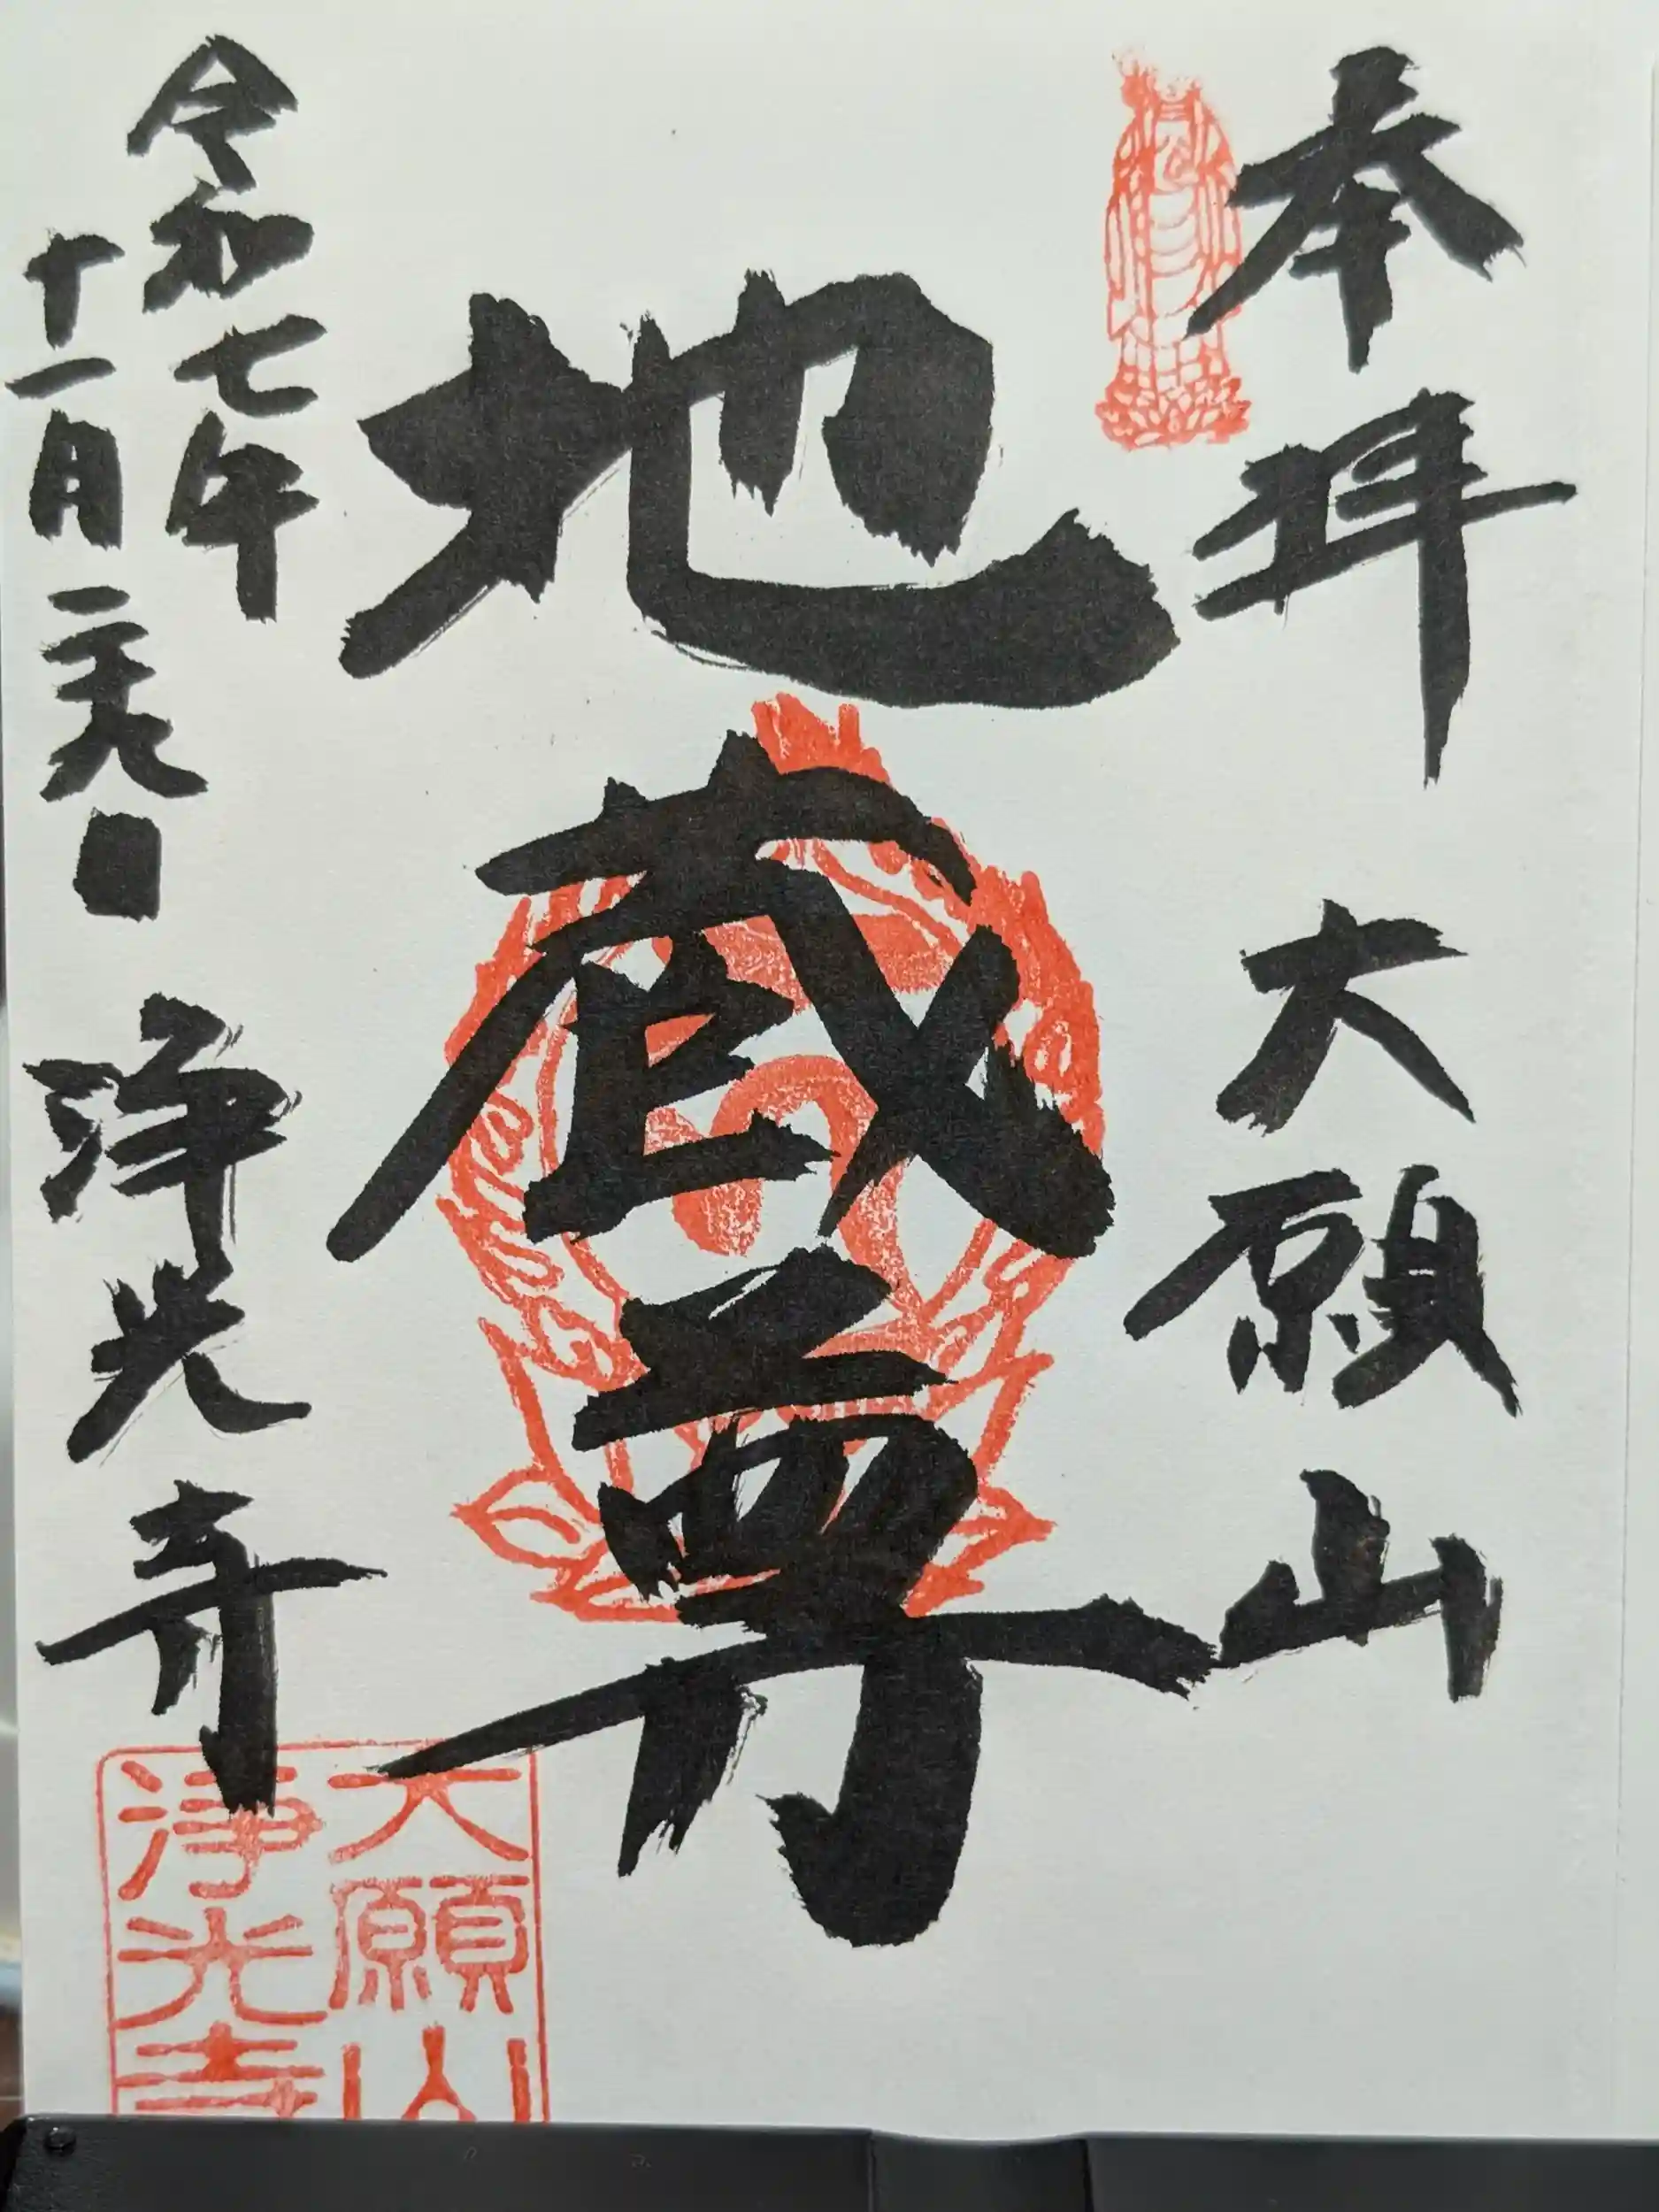 本拝 大願山
地蔵尊
令和七年
十一月二十九日 浄光寺
大願山
浄光寺